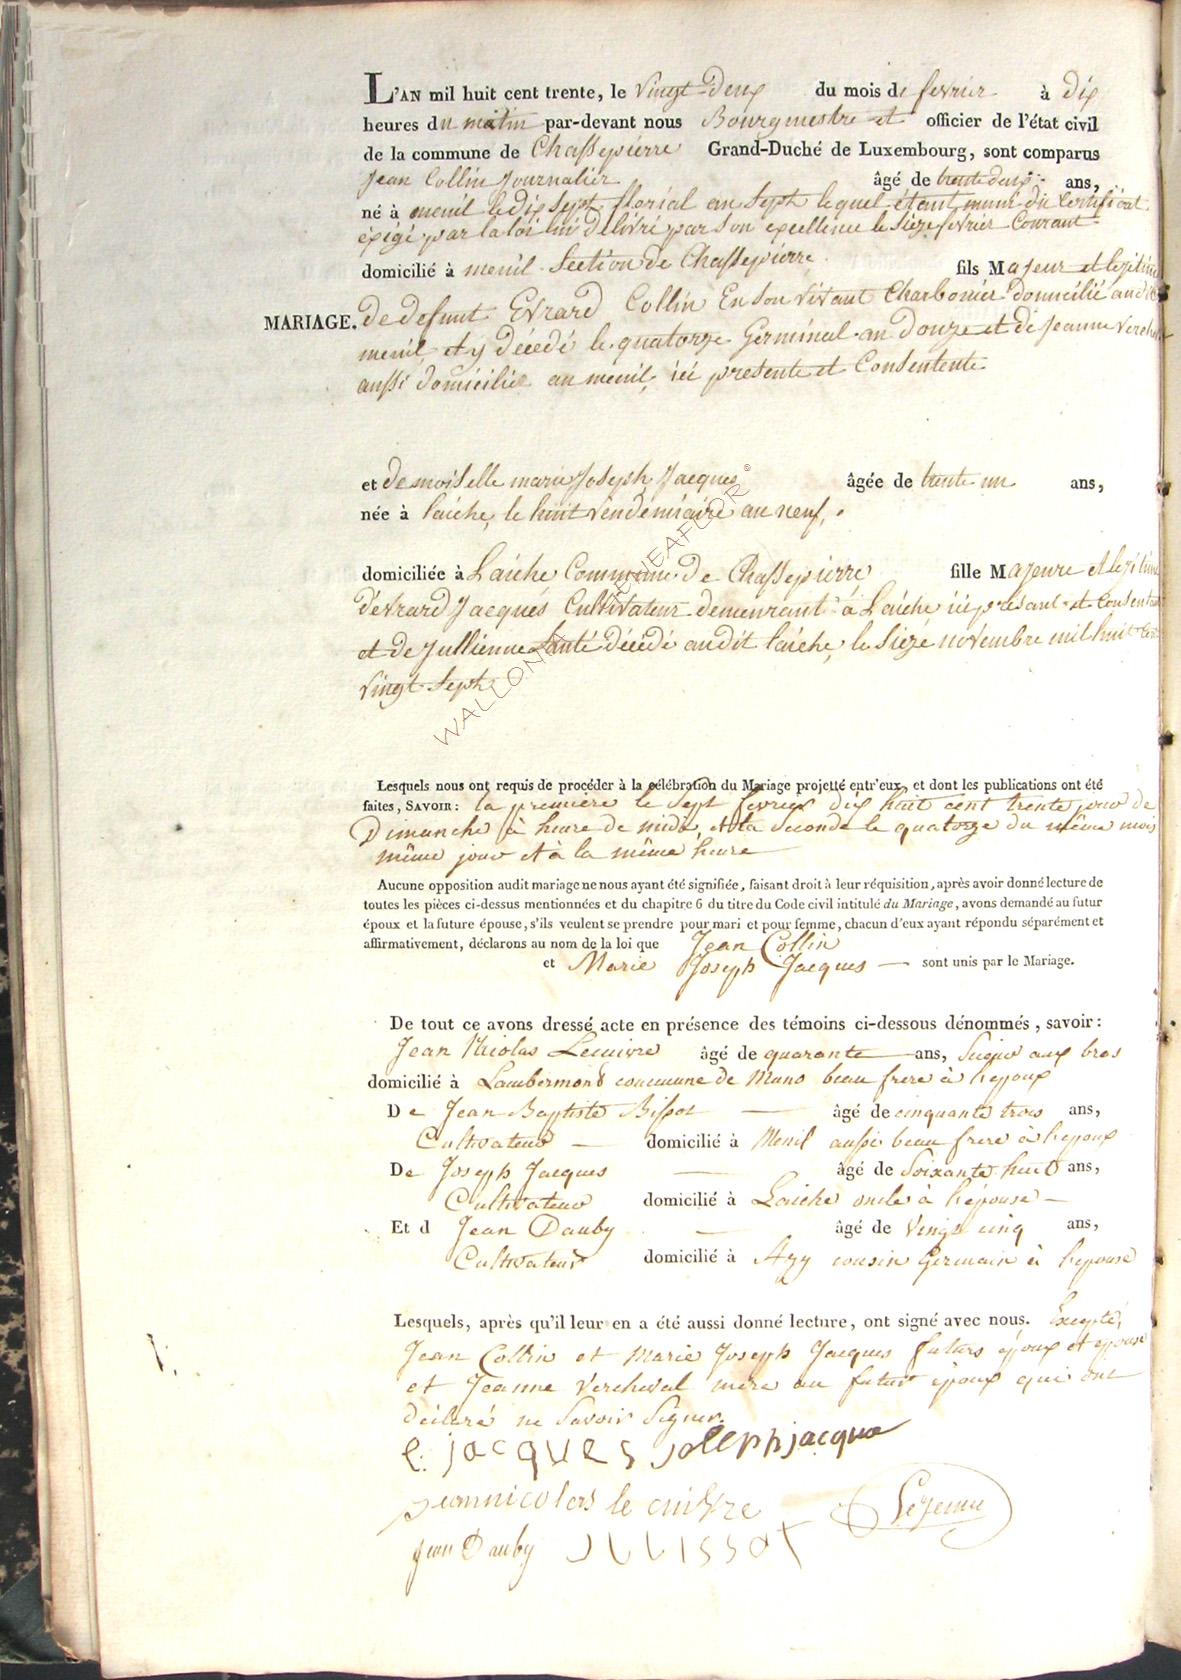 L'AN mil huit cent trente, le vingt-deux du mois de fevrier à dix
heures du matin par-devant nous Bourgmestre et officier de l'état civil
de la commune de Chassepierre Grand-Duché de Luxembourg, sont comparus
Jean Collin Journalier âgé de trente deux ans,
né à menil le dix sept floréal an sept lequel étant muni du Certificat
éxigé par la loi lui délivré par son excellence le sieze fevrier Courant
domicilié à menil Section de Chassepierre fils Majeur et legitime
MARIAGE. de defunt Evrard Collin En son vivant Charbonier domicilié audit
menil et y décédé le quatorze Germinal an Douze et de Jeanne Vercheval
aussi domiciliée au menil, ici presente et Consentente
et demoiselle marie Joseph Jacques âgée de trente un ans,
née à laiche, le huit vendemiaire an neuf.
domiciliée à Laiche Commune de Chassepierre fille Majeure et legitime
d'evrard Jacques Cultivateur demeurant à Laiche ici présant et Consentant
et de Jullienne Santé décédé audit laiche, le sieze novembre mil huit Cent
vingt sept
Lesquels nous ont requis de procéder à la célébration du Mariage projetté entr'eux, et dont les publications ont été
faites, SAVOIR : la première le sept fevrier dix huit cent trente jour de
Dimanche à heure de midi, et la seconde le quatorze du même mois
même jour et à la même heure
Aucune opposition audit mariage ne nous ayant été signifiée, faisant droit à leur réquisition, après avoir donné lecture de
toutes les pièces ci-dessus mentionnées et du chapitre 6 du titre du Code civil intitulé du Mariage, avons demandé au futur
époux et la future épouse, s'ils veulent se prendre pour mari et pour femme, chacun d'eux ayant répondu séparément et
affirmativement, déclarons au nom de la loi que Jean Collin
et Marie Joseph Jacques — sont unis par le Mariage.
De tout ce avons dressé acte en présence des témoins ci-dessous dénommés, savoir :
Jean Nicolas Lecuivre âgé de quarante ans, Sieur aux bras
domicilié à Lambermont commune de Muno beau frere à l'epoux
De Jean Baptiste Bissot — âgé de cinquante trois ans,
Cultivateur — domicilié à Menil aussi beau frere à l'epoux
De Joseph Jacques — âgé de Soixante huit ans,
Cultivateur domicilié à Laiche oncle à l'épouse —
Et d Jean Dauby — âgé de Vingt cinq ans,
Cultivateur domicilié à Azy cousin Germain à l'epouse
Lesquels, après qu'il leur en a été aussi donné lecture, ont signé avec nous. Excepté,
Jean Collin et Marie Joseph Jacques futurs époux et epouse
et Jeanne Vercheval mere au futur époux qui ont
déclaré ne savoir Signer.
e. jacques joseph jacque
jeannicolas le cuivre Lejeune
jean Dauby JBBISSOT
WALLONIA GENEAFLOR ©